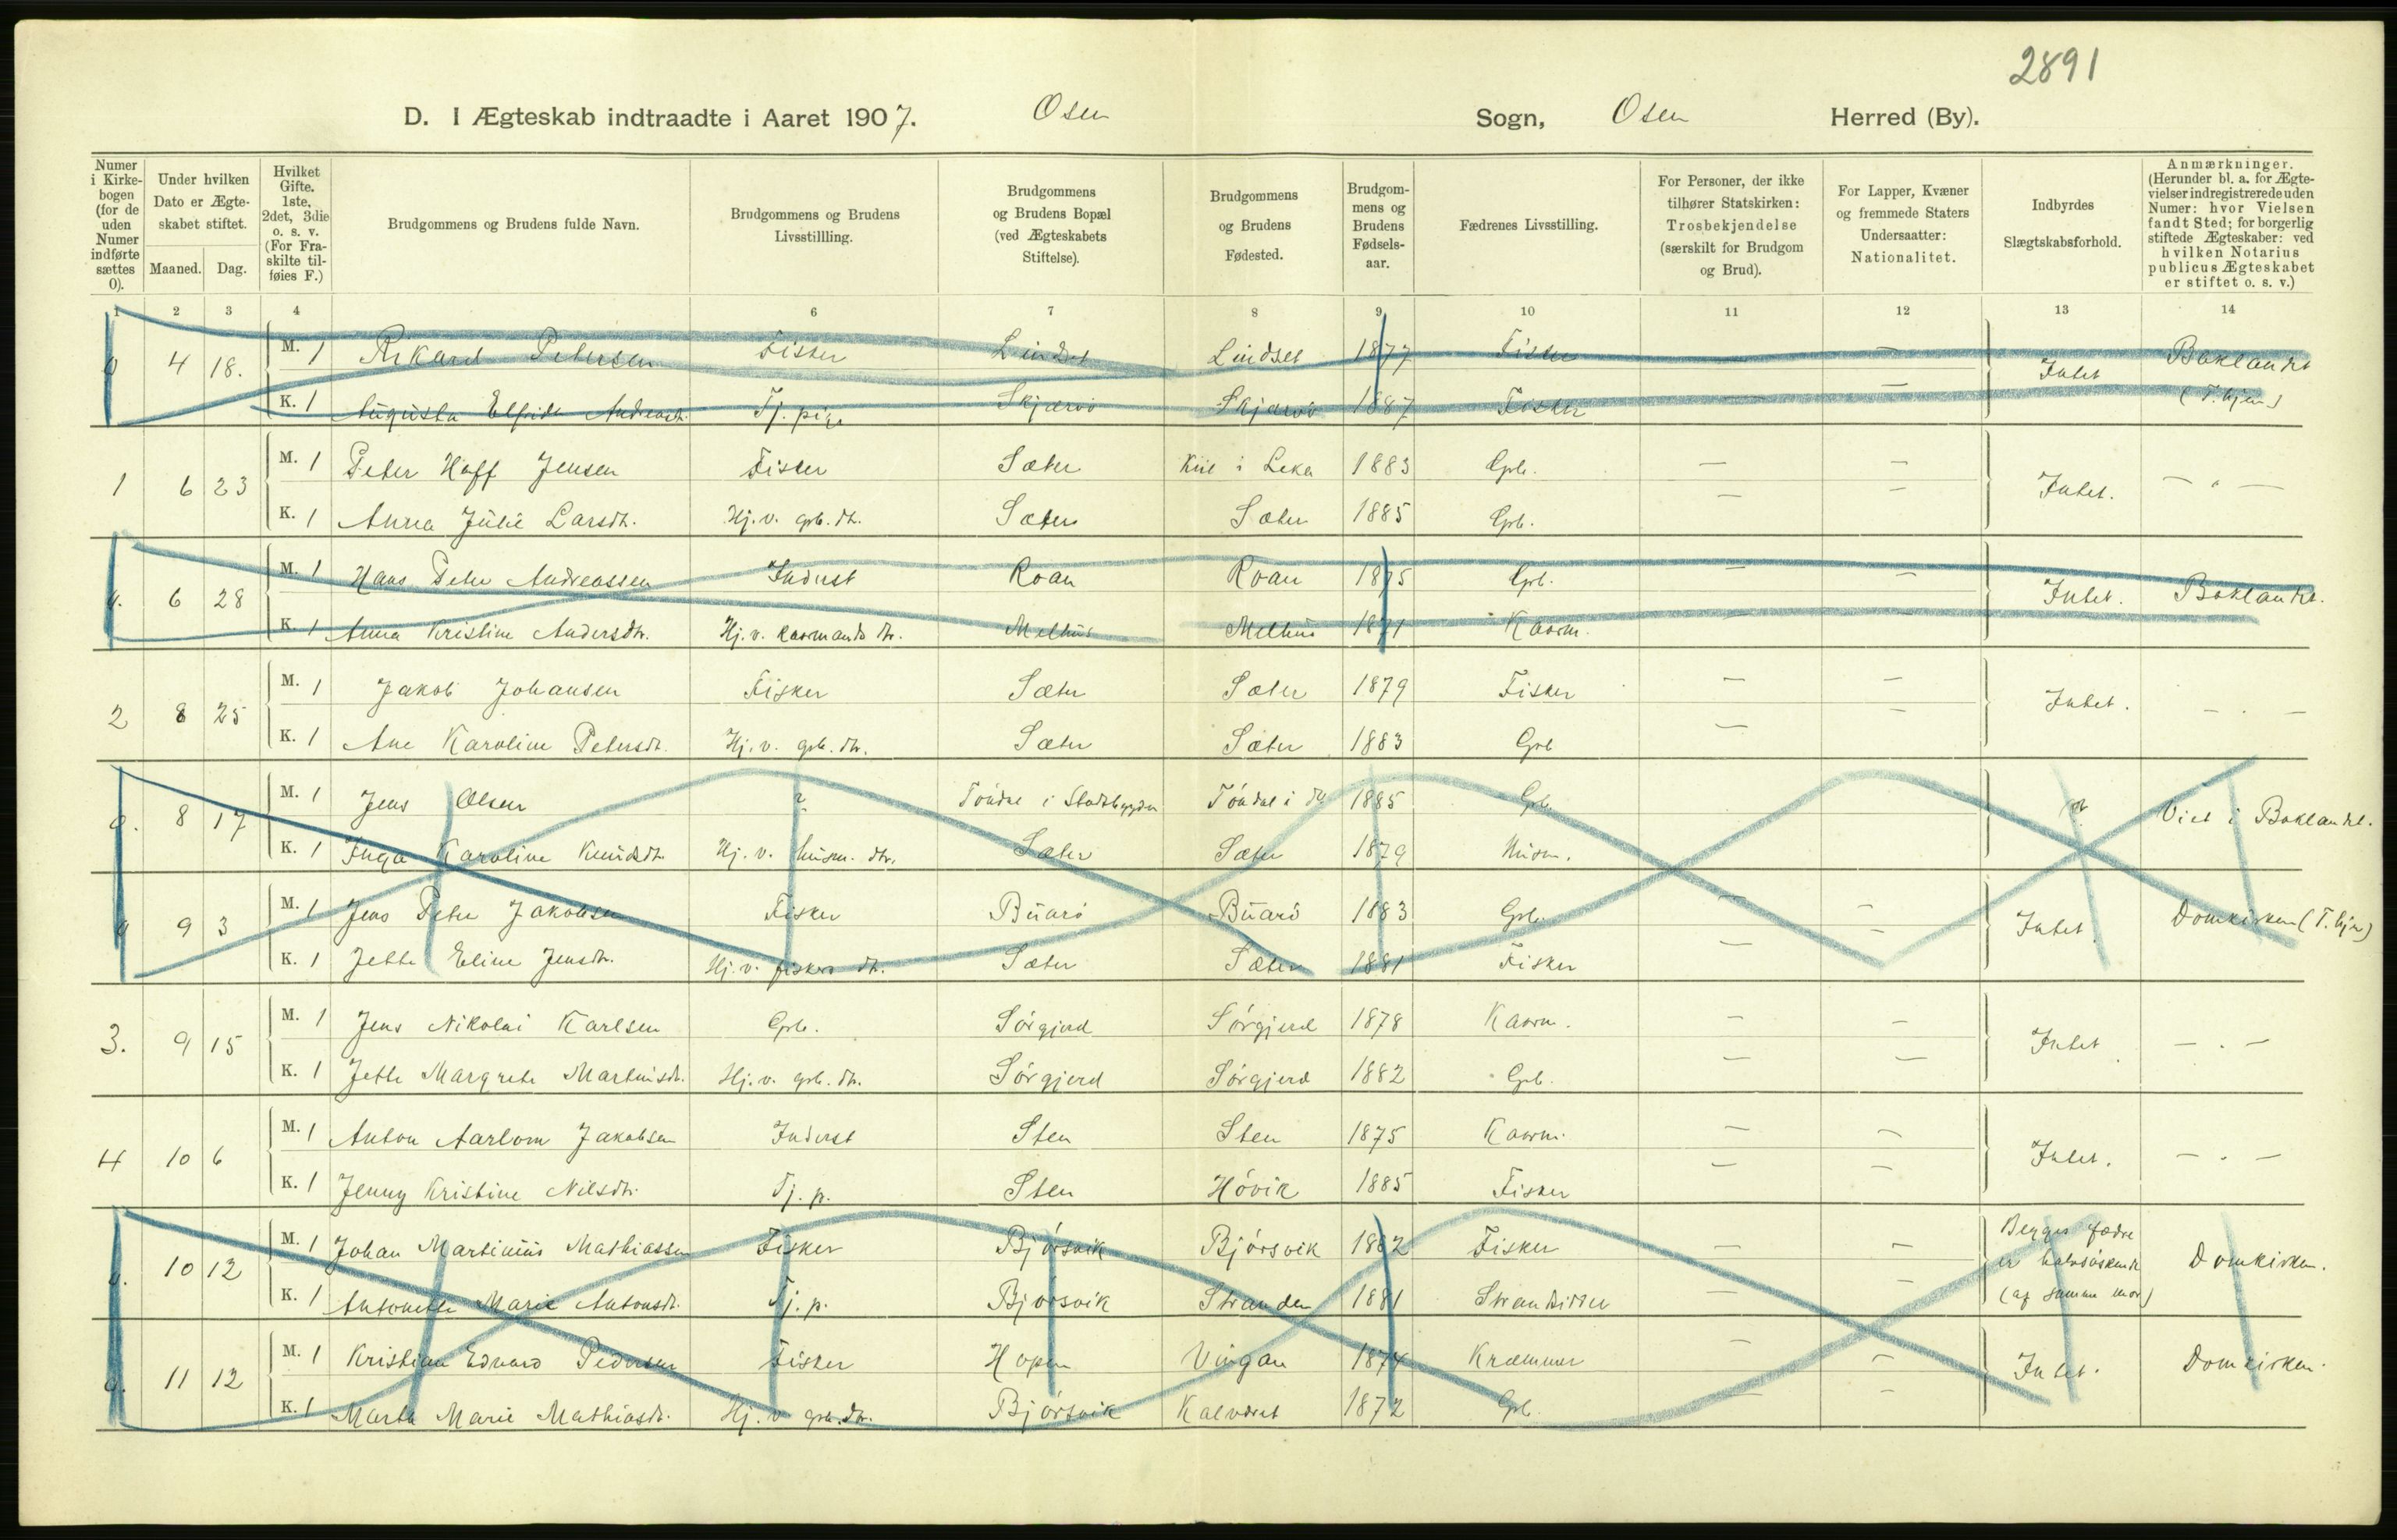 2891
D. I Ægteskab indtraadte i Aaret 1907. Osen Sogn, Osen Herred (By).
Numer i Kirkebogen (for de uden Numer indførte sættes 0).
Under hvilken Dato er Ægteskabet stiftet.
Maaned. Dag.
Hvilket Gifte. 1ste, 2det, 3die o. s. v. (For Fraskilte tilføies F.)
Brudgommens og Brudens fulde Navn.
Brudgommens og Brudens Livsstillling.
Brudgommens og Brudens Bopæl (ved Ægteskabets Stiftelse).
Brudgommens og Brudens Fødested.
Brudgommens og Brudens Fødselsaar.
Fædrenes Livsstilling.
For Personer, der ikke tilhører Statskirken: Trosbekjendelse (særskilt for Brudgom og Brud).
For Lapper, Kvæner og fremmede Staters Undersaatter: Nationalitet.
Indbyrdes Slægtskabsforhold.
Anmærkninger. (Herunder bl. a. for Ægtevielser indregistrerede uden Numer: hvor Vielsen fandt Sted; for borgerlig stiftede Ægteskaber: ved hvilken Notarius publicus Ægteskabet er stiftet o. s. v.)
1 2 3 4 6 7 8 9 10 11 12 13 14
0 4 18. M. 1 Rikard Petersen Fisker Lindset Lindset 1877 Fisker — Intet Baklandet
K. 1 Augusta Elfrida Andreasdt. Tj. pige Skjærvö Skjærvö 1887 Fisker — (T.hjem)
1 6 23 M. 1 Peter Hoff Jensen Fisker Sæter Kiil i Leka 1883 Grb. — — Intet. — " —
K. 1 Anna Julie Larsdt. Hj. v. grb. dt. Sæter Sæter 1885 Grb. — —
0. 6 28 M. 1 Hans Peter Andreassen Inderst Roan Roan 1875 Grb. — — Intet. Baklandet.
K. 1 Anna Kristine Andersdt. Hj. v. kaarmands dt. Melhus Melhus 1871 Kaarm.
2 8 25 M. 1 Jakob Johansen Fisker Sæter Sæter 1879 Fisker — — Intet. — . —
K. 1 Ane Karoline Petersdt. Hj. v. grb. dt. Sæter Sæter 1883 Grb — —
0. 8 17 M. 1 Jens Olsen ? Töndel i Stadsbygden Töndel i do 1885 Grb. ? Viet i Baklandet.
K. 1 Inga Karoline Knudsdt. Hj. v. husm. dtr. Sæter Sæter 1879 Husm.
0 9 3 M. 1 Jens Peter Jakobsen Fisker Buarö Buarö 1883 Grb. — — Intet. Domkirken (T.hjem)
K. 1 Jette Eline Jensdt. Hj. v. fiskers dt. Sæter Sæter 1881 Fisker — —
3. 9 15 M. 1 Jens Nikolai Karlsen Grb. Sörgjerd Sörgjerd 1878 Kaarm. — — Intet. — . —
K. 1 Jette Margrete Martinsdt. Hj. v. grb. dt. Sörgjerd Sörgjerd 1882 Grb. — —
4 10 6 M. 1 Anton Aarlom Jakobsen Inderst Sten Sten 1875 Kaarm. — — Intet. — . —
K. 1 Jenny Kristine Nilsdt. Tj. p. Sten Hövik 1885 Fisker — —
0. 10 12 M. 1 Johan Martinius Mathiassen Fisker Björsvik Björsvik 1882 Fisker — — Begges fædre er halvsöskende (af samme mor) Domkirken.
K. 1 Antonette Marie Antonsdt. Tj. p. Björsvik Stranden 1881 Strandsidder — —
0. 11 12 M. 1 Kristian Edvard Pedersen Fisker Hopen Vingan 1874 Kræmmer — — Intet. Domkirken.
K. 1 Marta Marie Mathiasdt. Hj. v. grb. dt. Björsvik Kalvöret 1872 Grb. — —